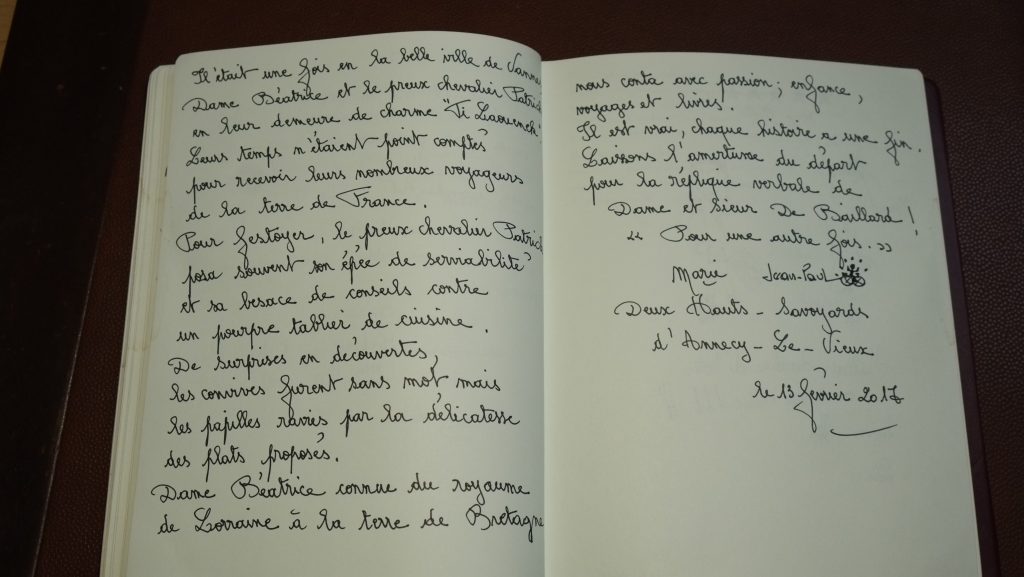 Il était une fois en la belle ville de Vannes
Dame Béatrice et le preux chevalier Patrick
en leur demeure de charme "Ti Laouenek".
Leurs temps n'étaient point comptés
pour recevoir leurs nombreux voyageurs
de la terre de France.
Pour festoyer, le preux chevalier Patrick
posa souvent son épée de serviabilité
et sa besace de conseils contre
un pourpre tablier de cuisine.
De surprises en découvertes,
les convives furent sans mot mais
les papilles ravies par la délicatesse
des plats proposés.
Dame Béatrice connue du royaume
de Lorraine à la terre de Bretagne
nous conta avec passion ; enfance,
voyages et livres.
Il est vrai, chaque histoire a une fin.
Laissons l'amertume du départ
pour la réplique verbale de
Dame et Sieur De Baillard !
" Pour une autre fois. "
Marie Jean-Paul
Deux Hauts-Savoyards
d'Annecy-Le-Vieux
le 13 février 2017